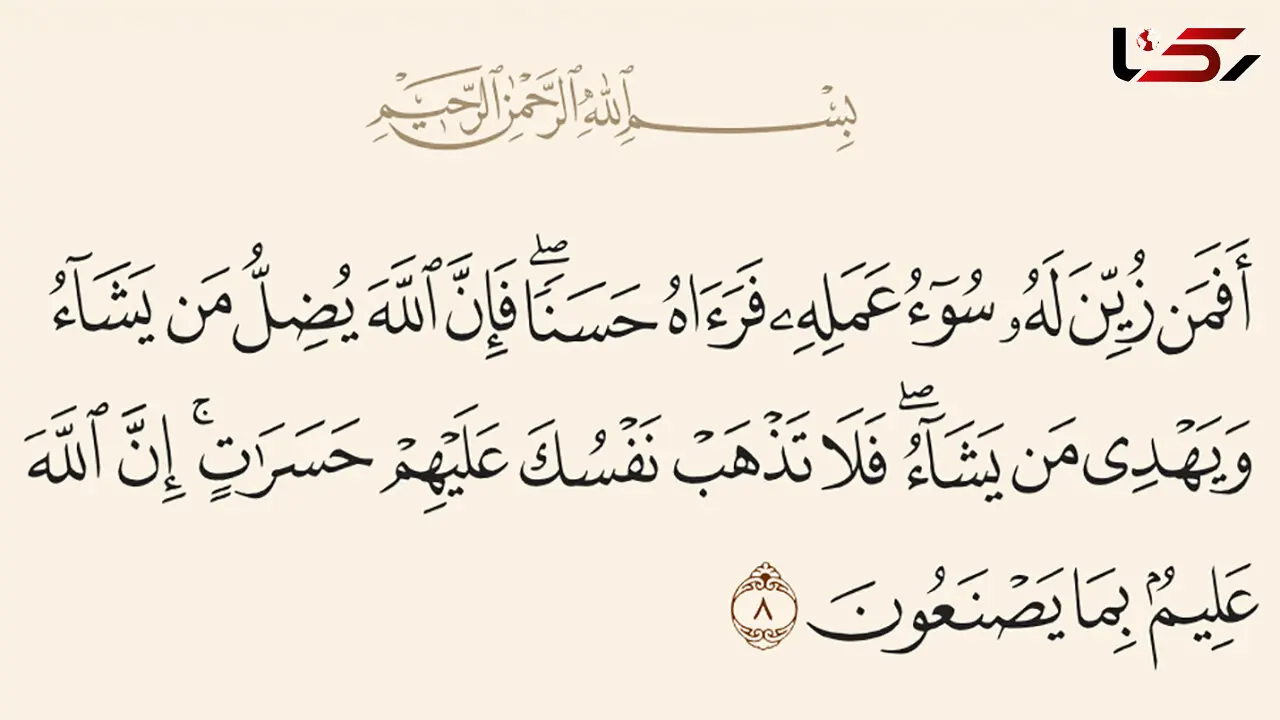 رکنا
بِسْمِ ٱللَّهِ ٱلرَّحْمَٰنِ ٱلرَّحِيمِ
أَفَمَن زُيِّنَ لَهُۥ سُوٓءُ عَمَلِهِۦ فَرَءَاهُ حَسَنٗاۖ فَإِنَّ ٱللَّهَ يُضِلُّ مَن يَشَآءُ
وَيَهۡدِي مَن يَشَآءُۖ فَلَا تَذۡهَبۡ نَفۡسُكَ عَلَيۡهِمۡ حَسَرَٰتٍۚ إِنَّ ٱللَّهَ
عَلِيمُۢ بِمَا يَصۡنَعُونَ ٨